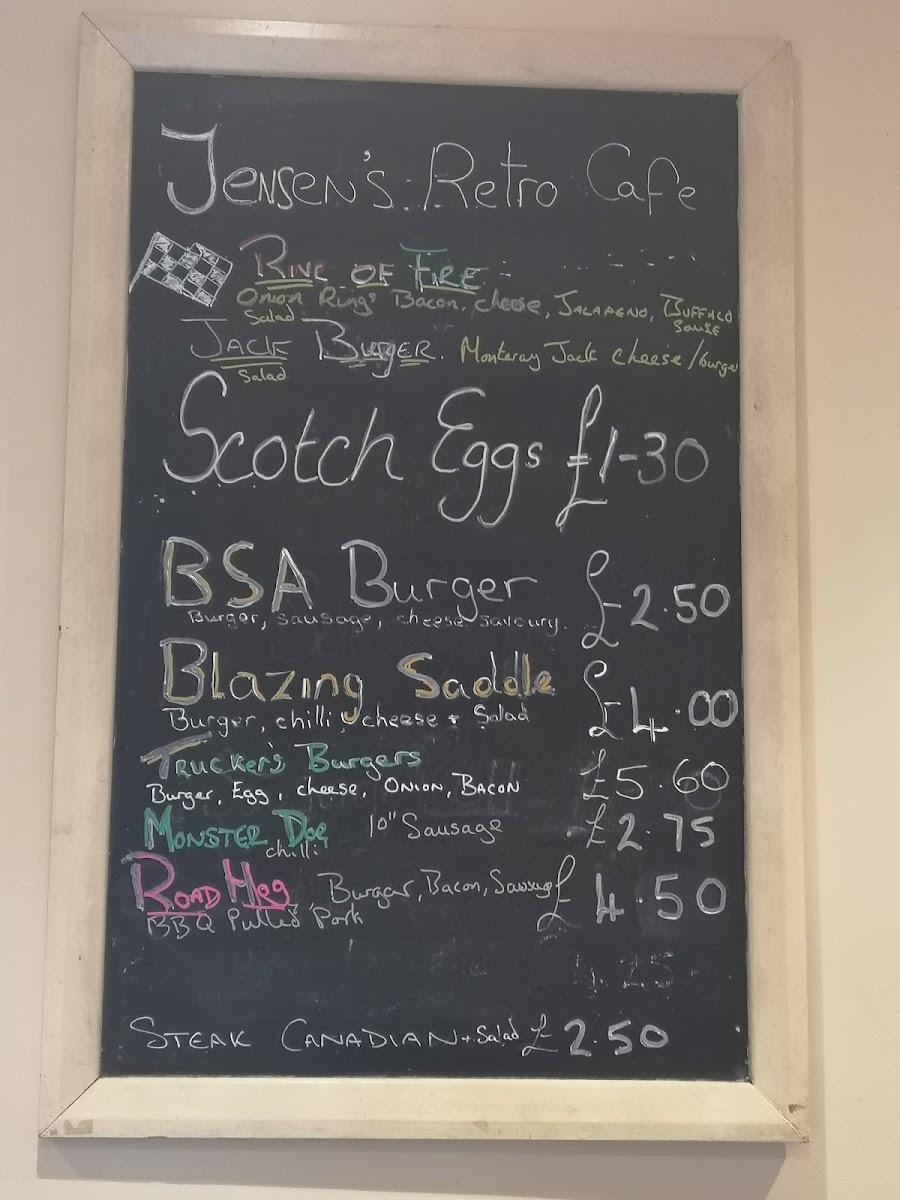 Jensen's Retro Cafe
RING OF FIRE
Onion Rings Bacon, cheese, JALAPENO, BUFFALO
Salad
Sauce
JACK Burger. Monteray Jack cheese/burger
Salad
Scotch Eggs £1-30
BSA Burger £2.50
Burger, sausage, cheese savoury.
Blazing Saddle £4.00
Burger, chilli, cheese + Salad
TRUCKER'S BURGERS £5.60
Burger, Egg, cheese, ONION, BACON
MONSTER DOG 10" Sausage £2.75
chilli
ROAD HOG, Burger, Bacon, Sausage £4.50
BBQ Pulled Pork
4.25
STEAK CANADIAN + Salad £2.50